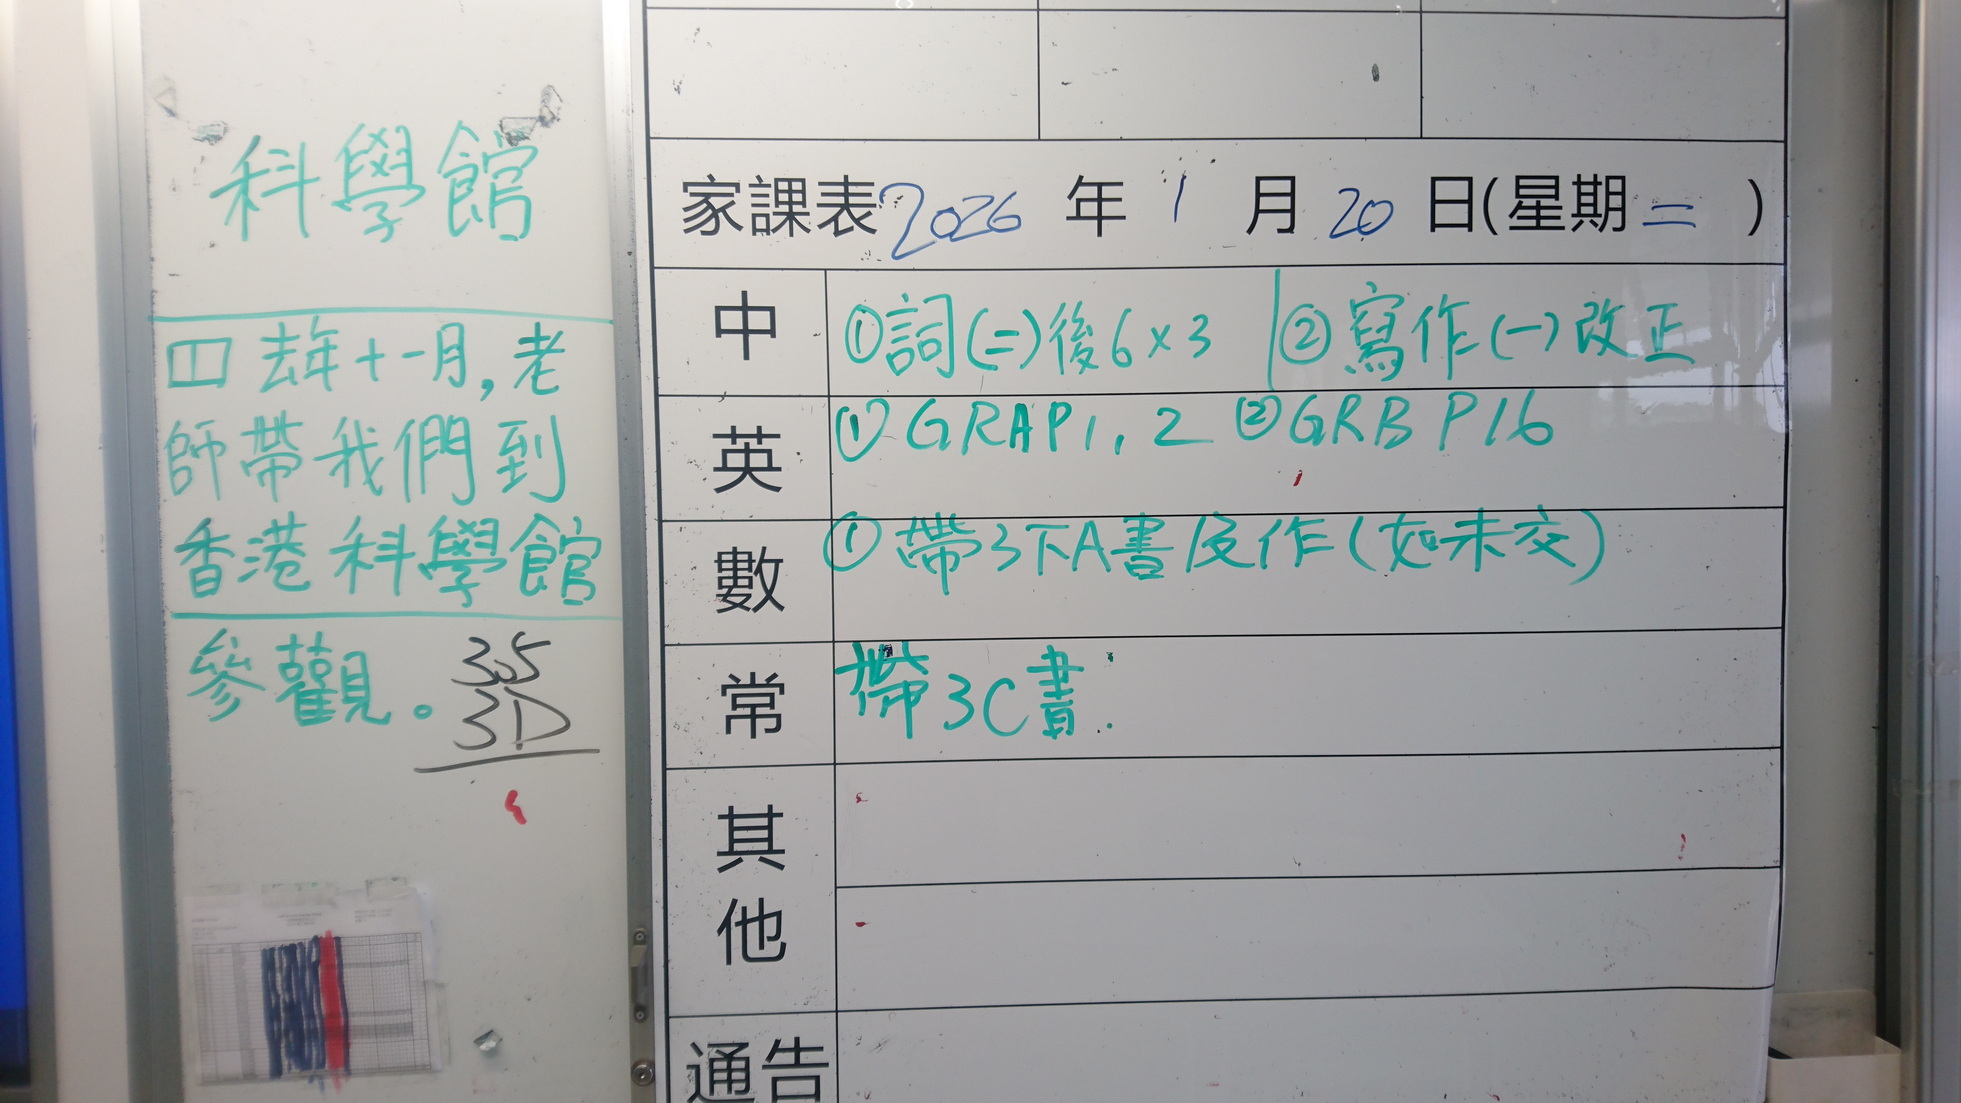 科學館
四 去年十一月,老
師帶我們到
香港科學館
參觀。
35
3D
家課表2026 年 1 月 20 日(星期二 )
中 ①詞(二)後6×3 ②寫作(一)改正
英 ① GRA P1, 2 ② GRB P16
數 ① 帶3下A書及作(如未交)
常 帶3C書.
其他
通告